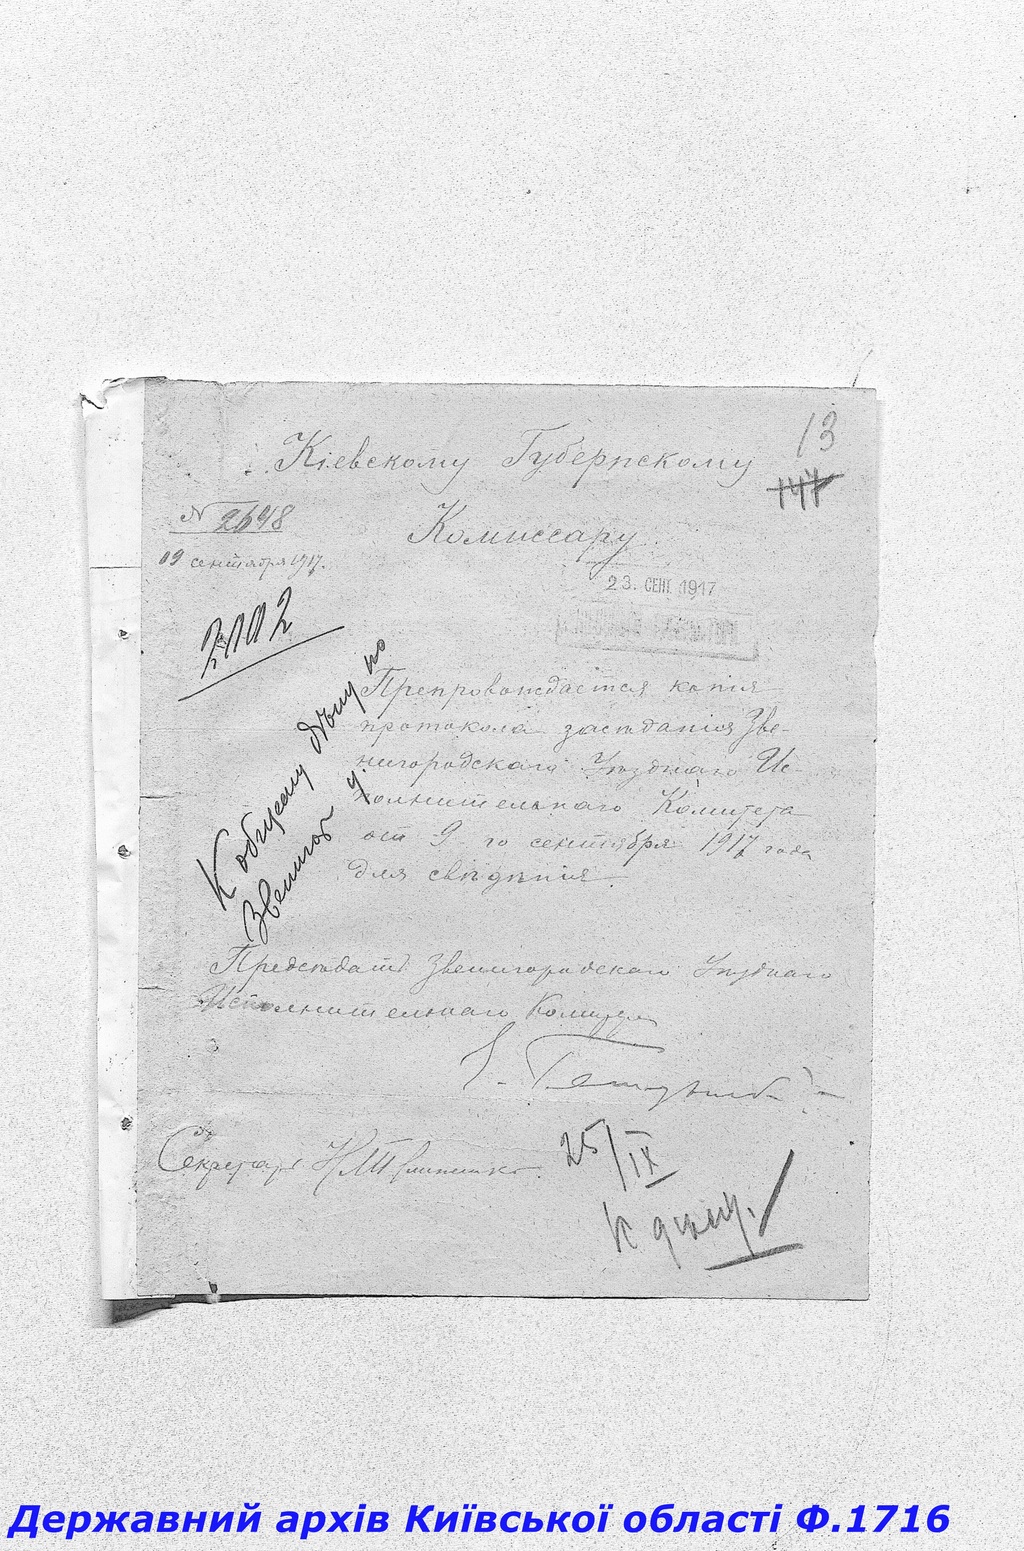 13
Кіевскому Губернскому
147
№ 2648
Комиссару
09 сентября 1917.
23. СЕНТ. 1917
К общему дѣлу по
Звенигор у.
Препровождается копія
протокола засѣданія Зве-
нигородскаго Уѣзднаго Ис-
полнительнаго Комитета
от 9-го сентября 1917 года
для свѣдѣнія.
Председат Звенигородскаго Уѣзднаго
Исполнительнаго Комитета
Секретарь
25/IX
К дѣлу.
Державний архів Київської області Ф.1716